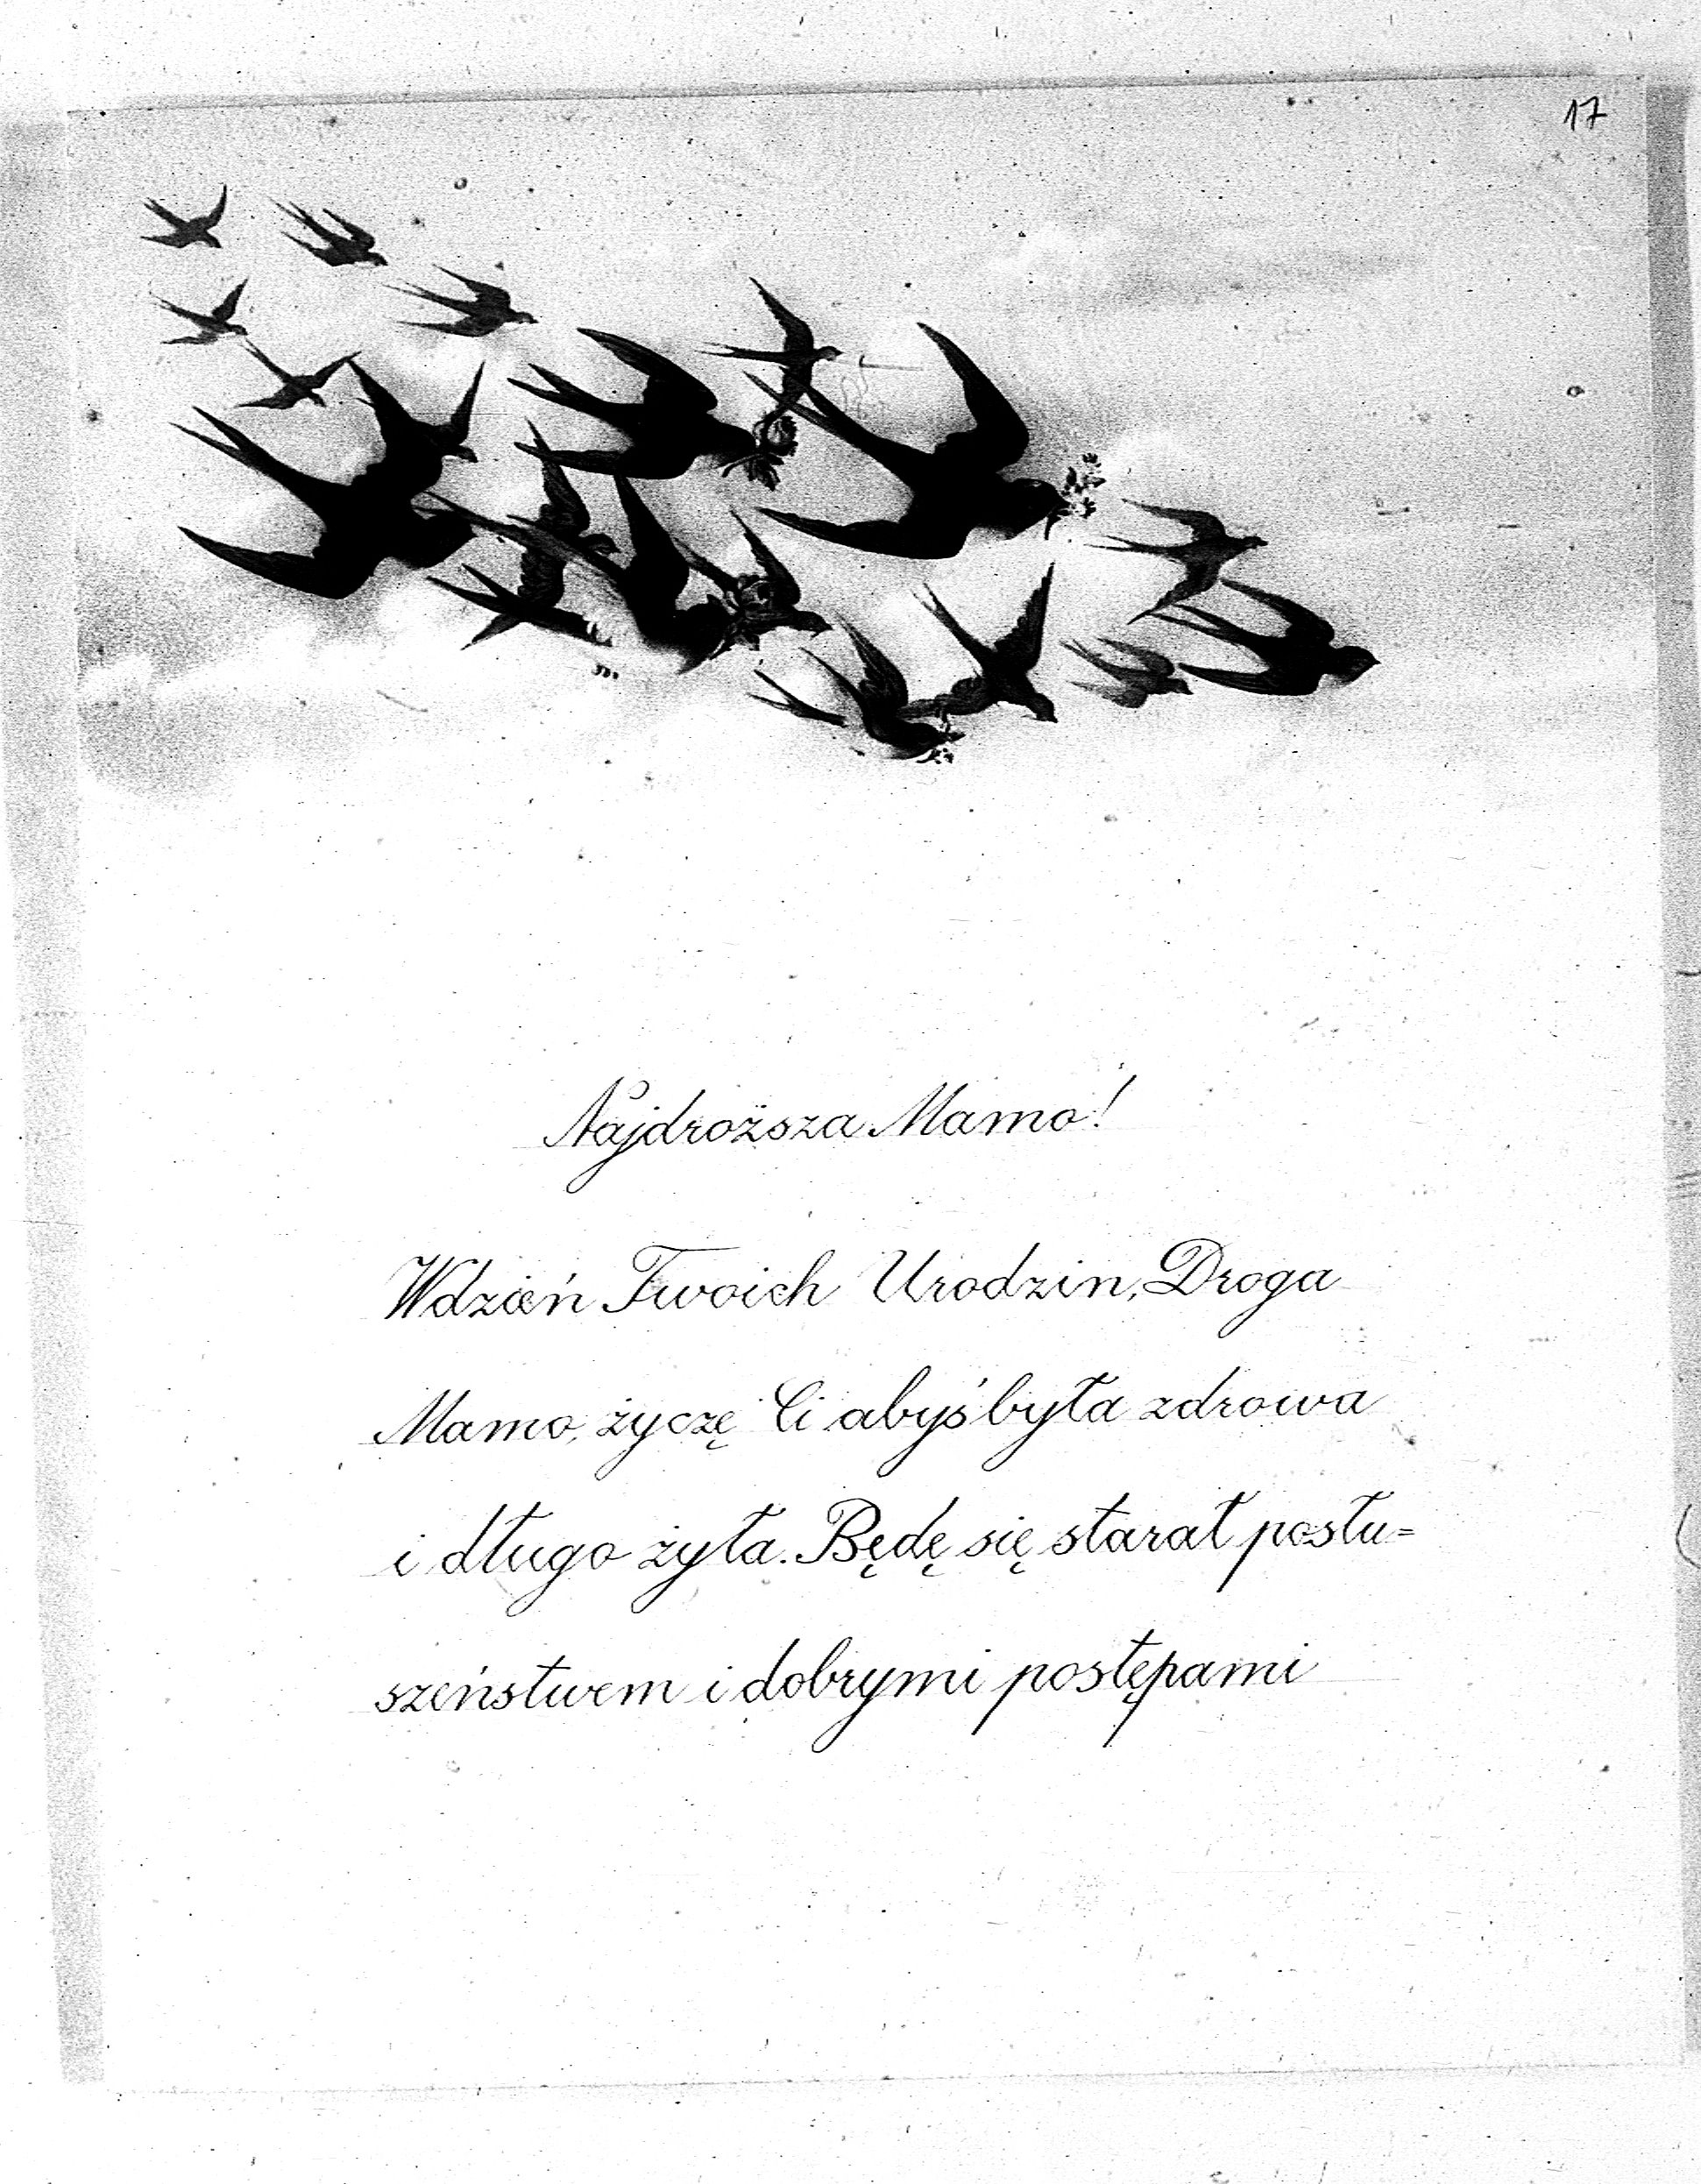 17
Najdroższa Mamo!
Wdzień Twoich Urodzin, Droga
Mamo, życzę Ci abyś była zdrowa
i długo żyła. Będę się starał posłu=
szeństwem i dobrymi postępami